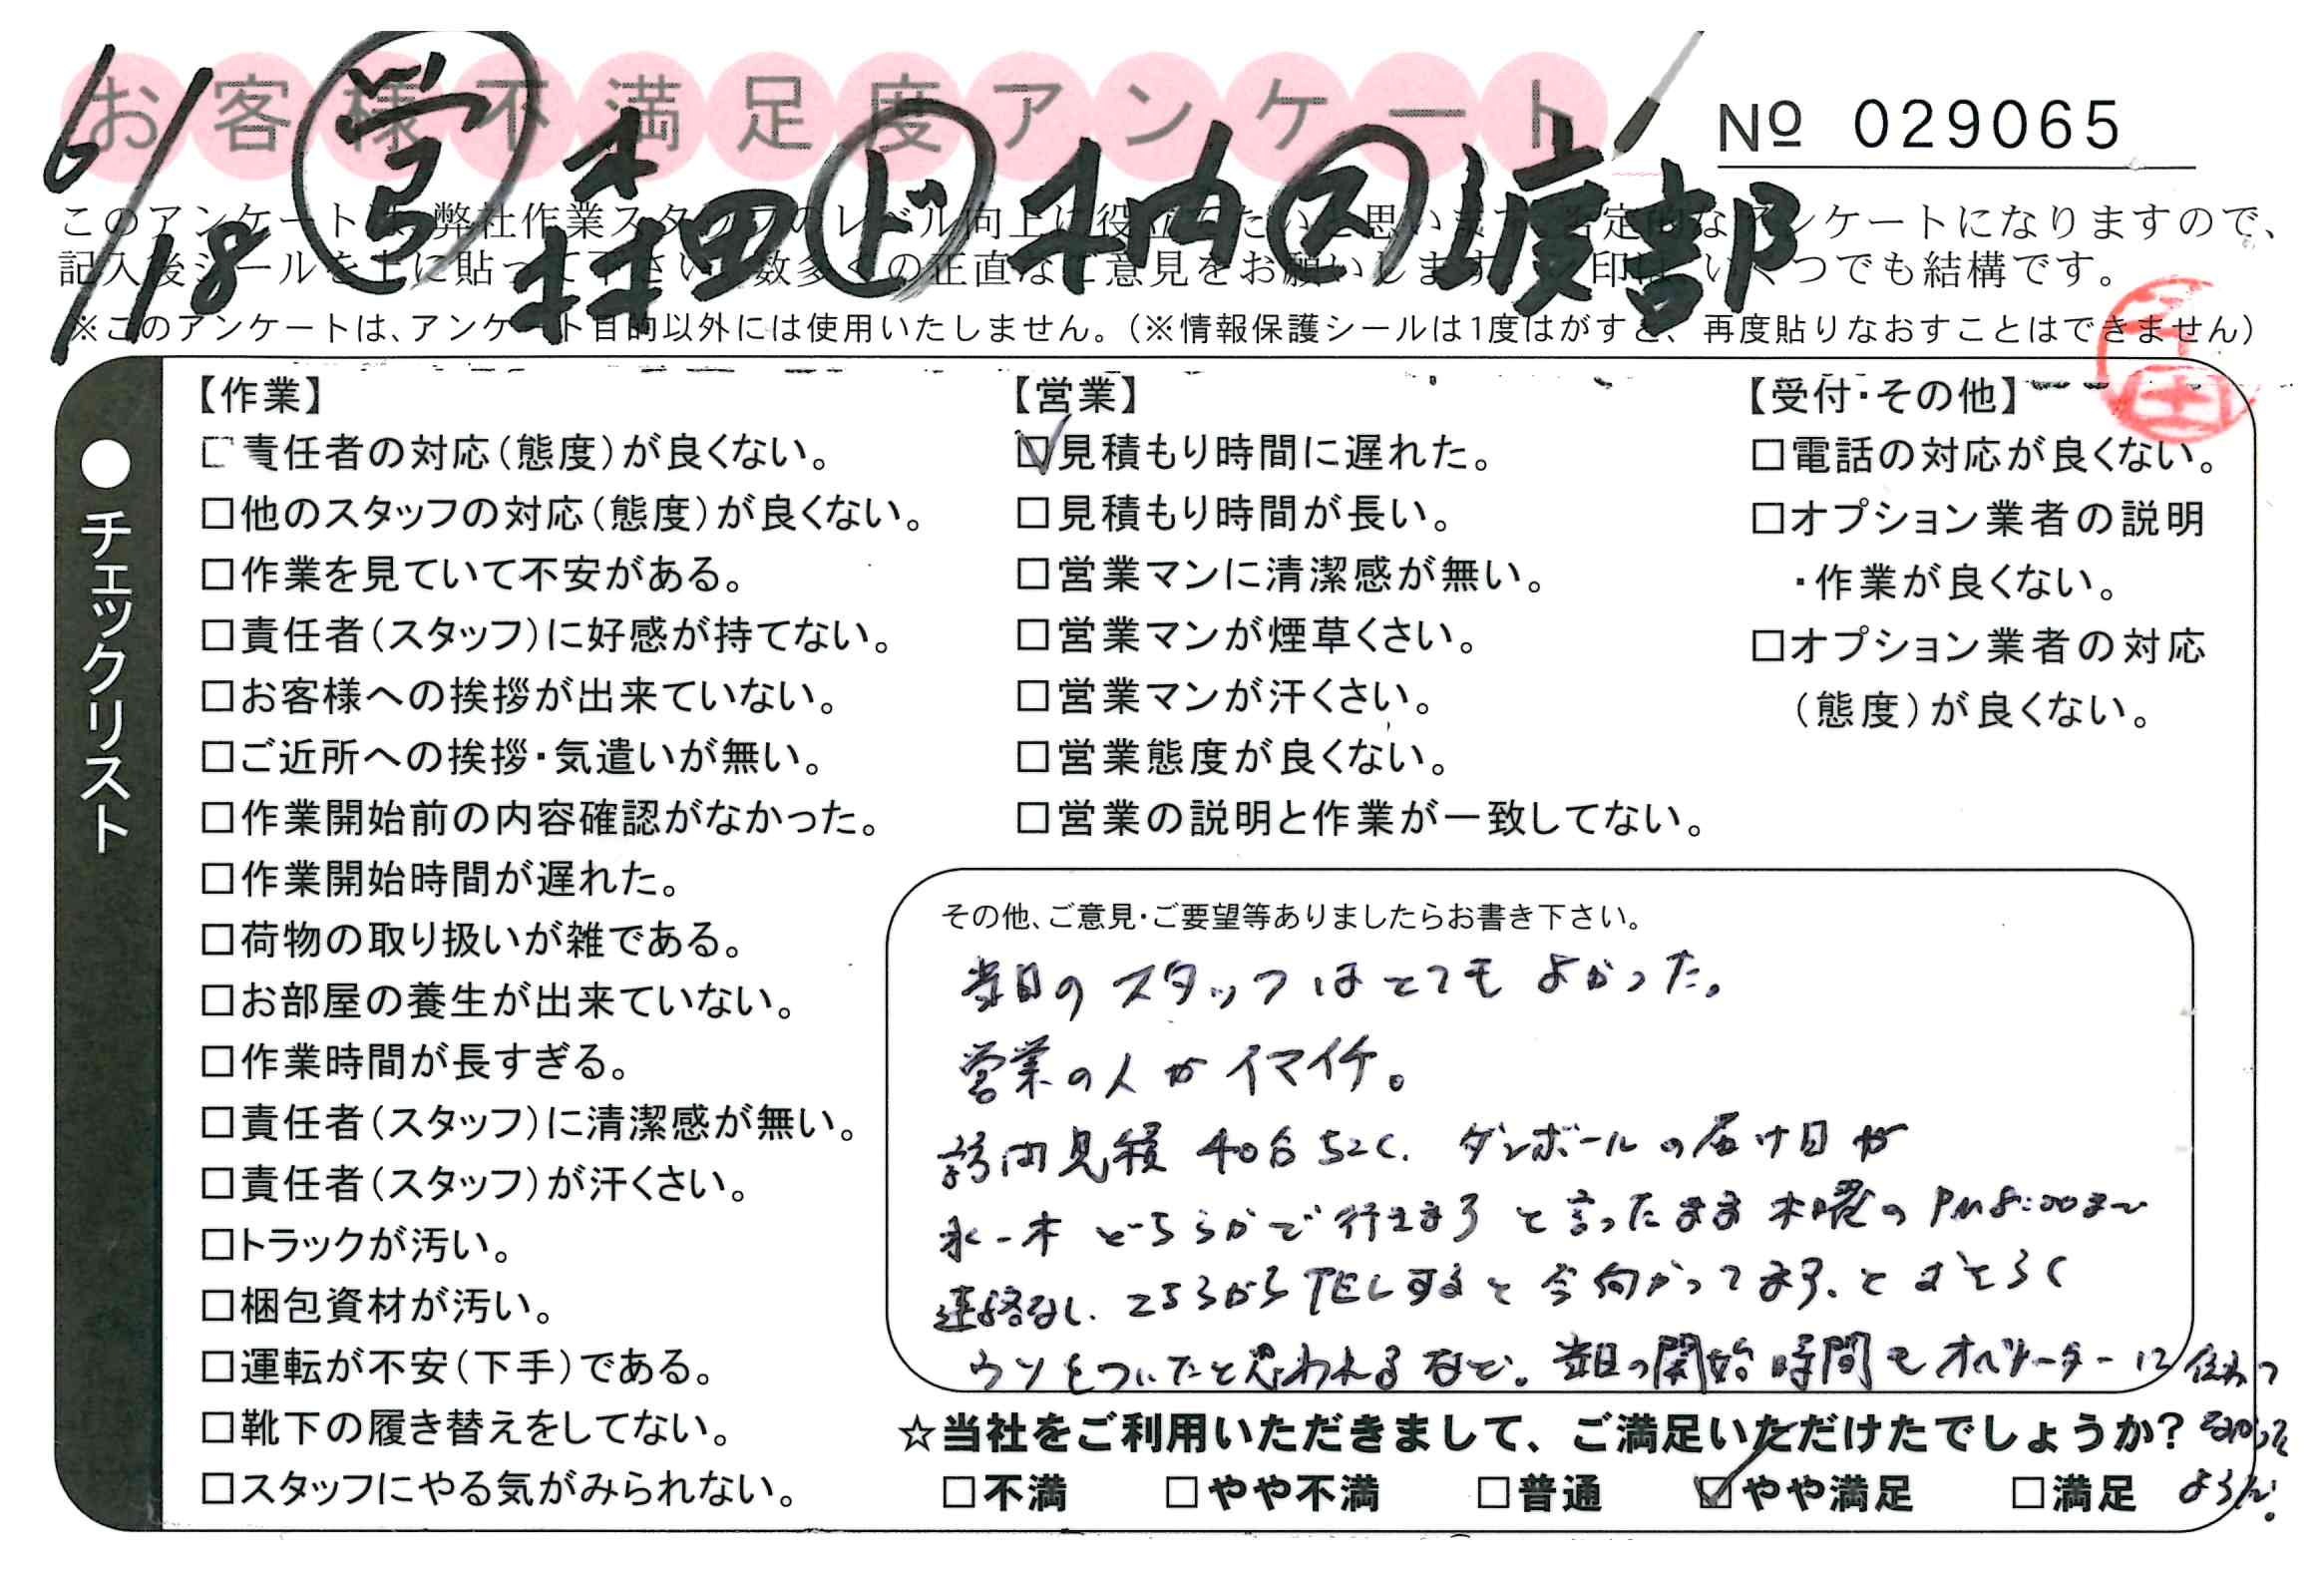 お客様不満足度アンケート
№ 029065
6/18 営 森田 ド 竹内 ス 渡部
このアンケートは、弊社作業スタッフのレベル向上に役立てたいと思います。否定的なアンケートになりますので、
記入後シールを上に貼って下さい。数多くの正直なご意見をお願いします。レ印は、いくつでも結構です。
※このアンケートは、アンケート目的以外には使用いたしません。(※情報保護シールは1度はがすと、再度貼りなおすことはできません)
●チェックリスト
【作業】
□責任者の対応(態度)が良くない。
□他のスタッフの対応(態度)が良くない。
□作業を見ていて不安がある。
□責任者(スタッフ)に好感が持てない。
□お客様への挨拶が出来ていない。
□ご近所への挨拶・気遣いが無い。
□作業開始前の内容確認がなかった。
□作業開始時間が遅れた。
□荷物の取り扱いが雑である。
□お部屋の養生が出来ていない。
□作業時間が長すぎる。
□責任者(スタッフ)に清潔感が無い。
□責任者(スタッフ)が汗くさい。
□トラックが汚い。
□梱包資材が汚い。
□運転が不安(下手)である。
□靴下の履き替えをしてない。
□スタッフにやる気がみられない。
【営業】
☑見積もり時間に遅れた。
□見積もり時間が長い。
□営業マンに清潔感が無い。
□営業マンが煙草くさい。
□営業マンが汗くさい。
□営業態度が良くない。
□営業の説明と作業が一致してない。
【受付・その他】
□電話の対応が良くない。
□オプション業者の説明
・作業が良くない。
□オプション業者の対応
(態度)が良くない。
その他、ご意見・ご要望等ありましたらお書き下さい。
当日のスタッフはとてもよかった。
営業の人がイマイチ。
訪問見積40分おそく、ダンボールの届け日が
水-木どちらかで行きますと言ったまま木曜のPM8:00まで
連絡なし、こちらからTELすると今向かってます、とおそらく
ウソをついたと思われるなど。当日の開始時間もオペレーターに伝わって
なかった
ような。
☆当社をご利用いただきまして、ご満足いただけたでしょうか?
□不満 □やや不満 □普通 ☑やや満足 □満足